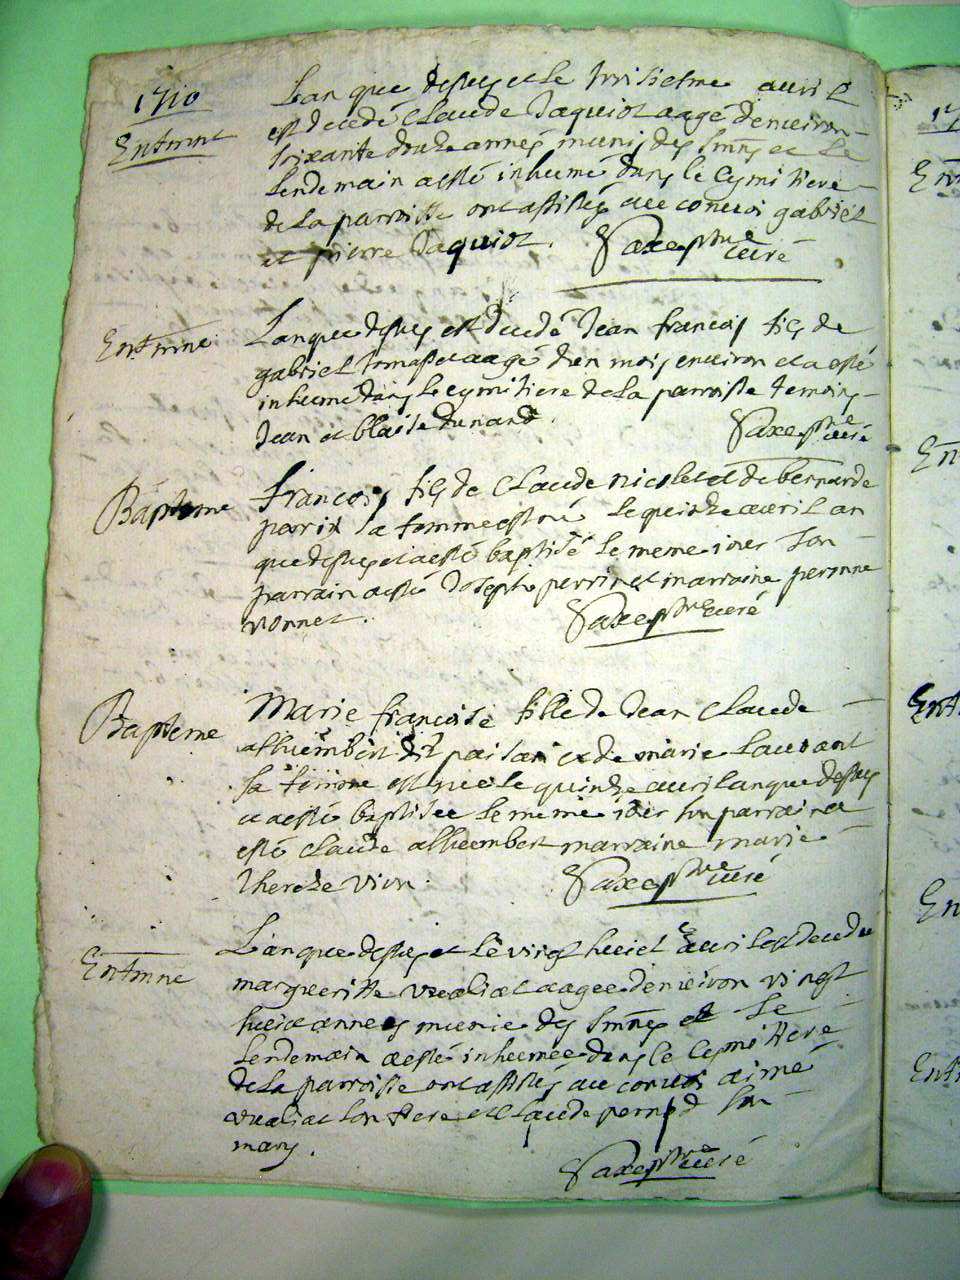 1710
Entmnt
Lan que dessus et le troisiesme avril
est decedé Claude Jaquiot aagé denviron
soixante douze années munis des Smns et le
lendemain a esté inhumé dans le Cymitiere
de la parroisse ont assistés au convoi gabriel
et pierre Jaquiot. Saxe ptre curé
Entmne
Lan que dessus est decedé Jean francois fils de
gabriel aagé dun mois environ et a esté
inhumé dans le cymitiere de la parroisse temoins
Jean et blaise dunand. Saxe ptre curé
Bapteme
francois fils de Claude nicolet et de bernarde
perrin sa femme est né le quinze avril an
que dessus et a esté baptisé le meme jour son
parrain a esté Joseph perrin et marraine peronne
vionnet. Saxe ptre curé
Bapteme
Marie francoise fille de Jean Claude
alhiembert dit paisan et de marie
sa femme est nee le quinze avril an que dessus
et a esté baptisee le meme jour son parrain a
esté Claude alhiembert marraine marie
Thereze vion. Saxe ptre curé
Entmne
Lan que dessus et le vingt huict avril est decedée
margueritte vualiat aagee denviron vingt
huict annees munie des Smns et le
lendemain a esté inhumée dans le Cymitiere
de la parroisse ont assistés au convoi aimé
vualiat son frere et Claude pernod son
mary.
Saxe ptre curé